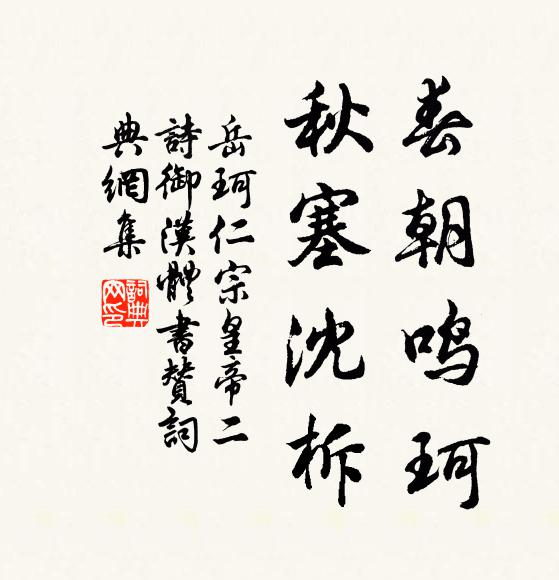 春朝鸣珂
秋塞沈柝
岳珂仁宗皇帝二
詩御漢體書赞詞
典網集
詞典网印